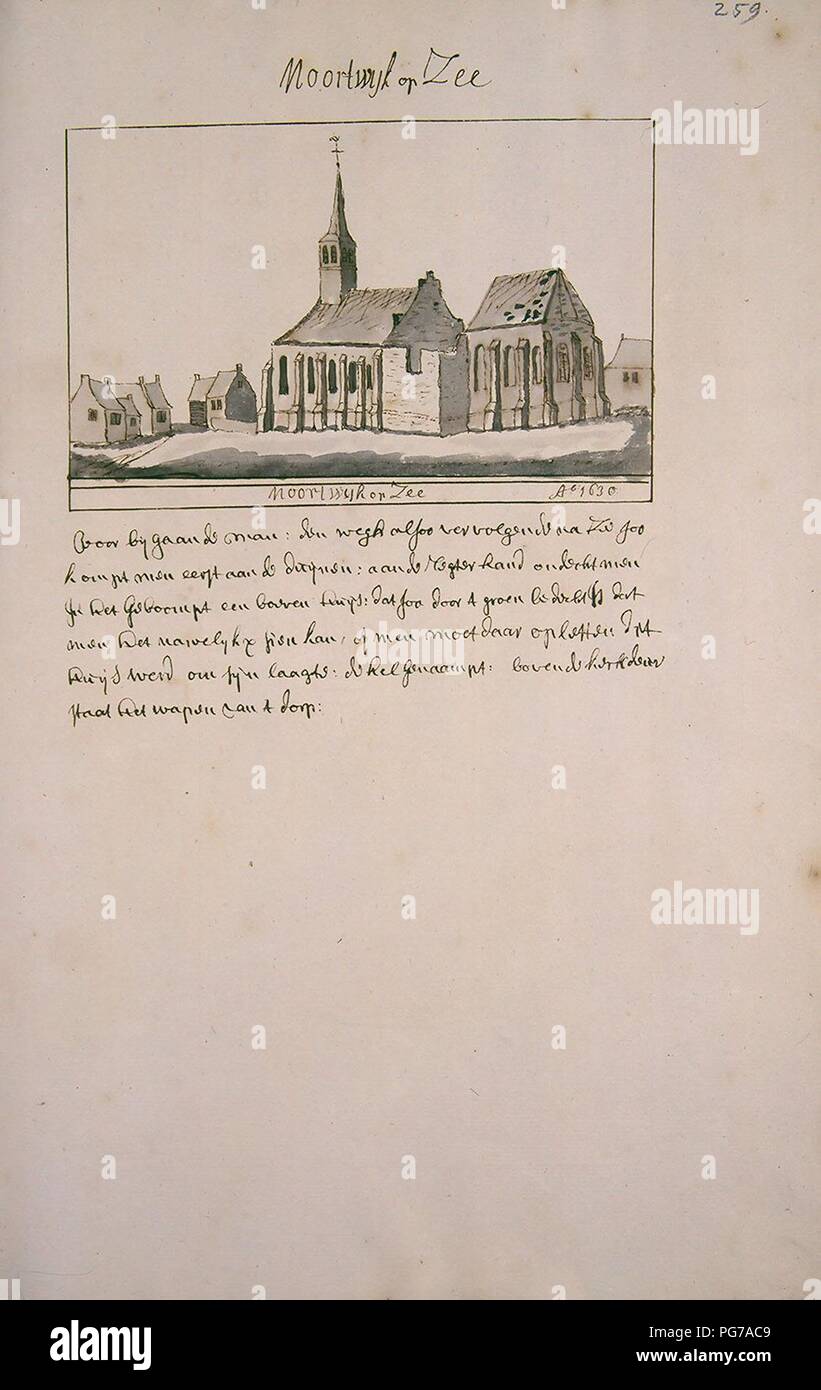 259.
Noortwijk op Zee
Noortwijk op Zee
Ao 1630
Voor bij gaande man: den wegh alsoo vervolgende na Zee soo
kompt men eerst aan de duijnen: aan de Regter hand ondeckt men
In het Geboompt een boeren huijs: dat soo door t groen bedeckt Is dat
men het nawelijkx sien kan, of men moet daar op letten dit
huijs werd om sijn laagte: de hel genaampt: boven de kerk deur
staat het wapen van t dorp:
alamy
Image ID: PG7AC9
www.alamy.com